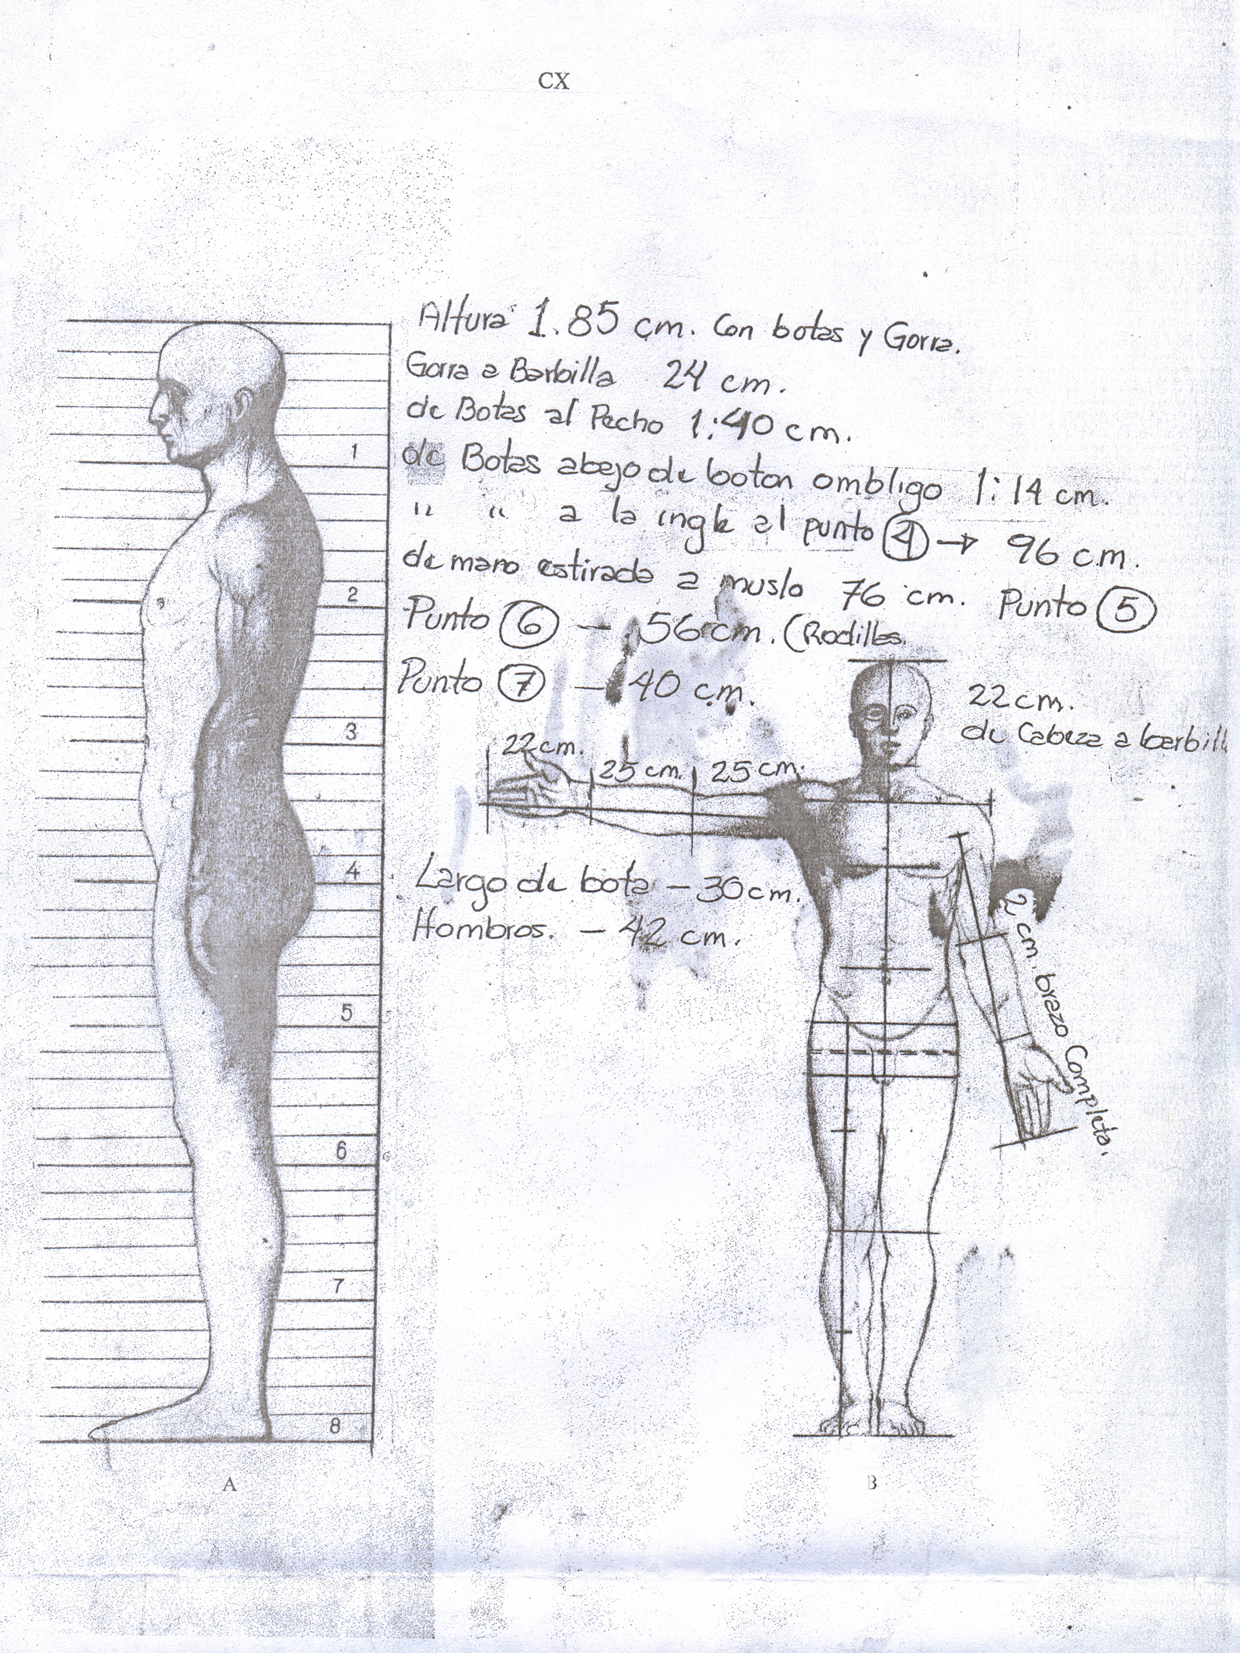 CX
Altura 1.85 cm. Con botas y Gorra.
Gorra a Barbilla 24 cm.
de Botas al Pecho 1:40 cm.
de Botas abajo de boton ombligo 1:14 cm.
" " a la ingle al punto 4 → 96 cm.
de mano estirada a muslo 76 cm. Punto 5
Punto 6 — 56 cm. (Rodillas.
Punto 7 — 40 cm.
22 cm.
de Cabeza a barbilla
22 cm.
25 cm.
25 cm.
Largo de bota — 30 cm.
Hombros. — 42 cm.
cm. brazo Completo.
1
2
3
4
5
6
7
8
A
B